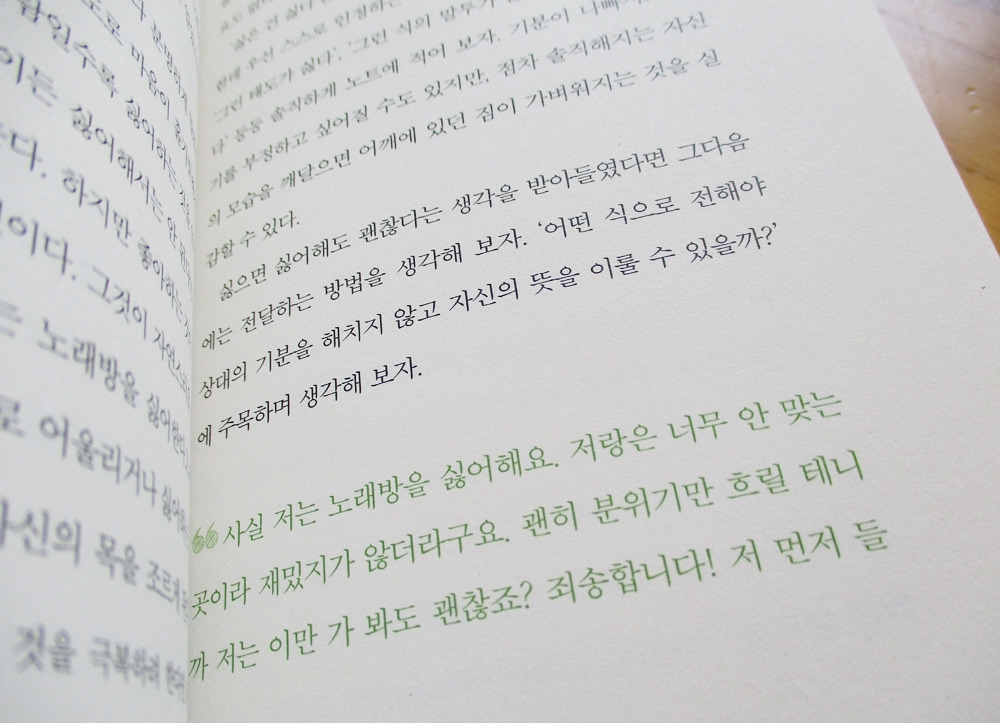 분명하게
도로 마음이
감일수록 싫어하는 것을
이든 싫어해서는 안
다. 하지만 좋아하는
이다. 그것이 자연스러
는 노래방을 싫어한다
로 어울리거나 싫어
자신의 목을 조르게
것을 극복하려 한다면
한테 우선 스스로 인정하는
'그런 태도가 싫다', '그런 식의 말투가
다' 등등 솔직하게 노트에 적어 보자. 기분이 나빠지
기를 부정하고 싶어질 수도 있지만, 점차 솔직해지는 자신
의 모습을 깨달으면 어깨에 있던 짐이 가벼워지는 것을 실
감할 수 있다.
싫으면 싫어해도 괜찮다는 생각을 받아들였다면 그다음
에는 전달하는 방법을 생각해 보자. '어떤 식으로 전해야
상대의 기분을 해치지 않고 자신의 뜻을 이룰 수 있을까?'
에 주목하며 생각해 보자.
“사실 저는 노래방을 싫어해요. 저랑은 너무 안 맞는
곳이라 재밌지가 않더라구요. 괜히 분위기만 흐릴 테니
까 저는 이만 가 봐도 괜찮죠? 죄송합니다! 저 먼저 들